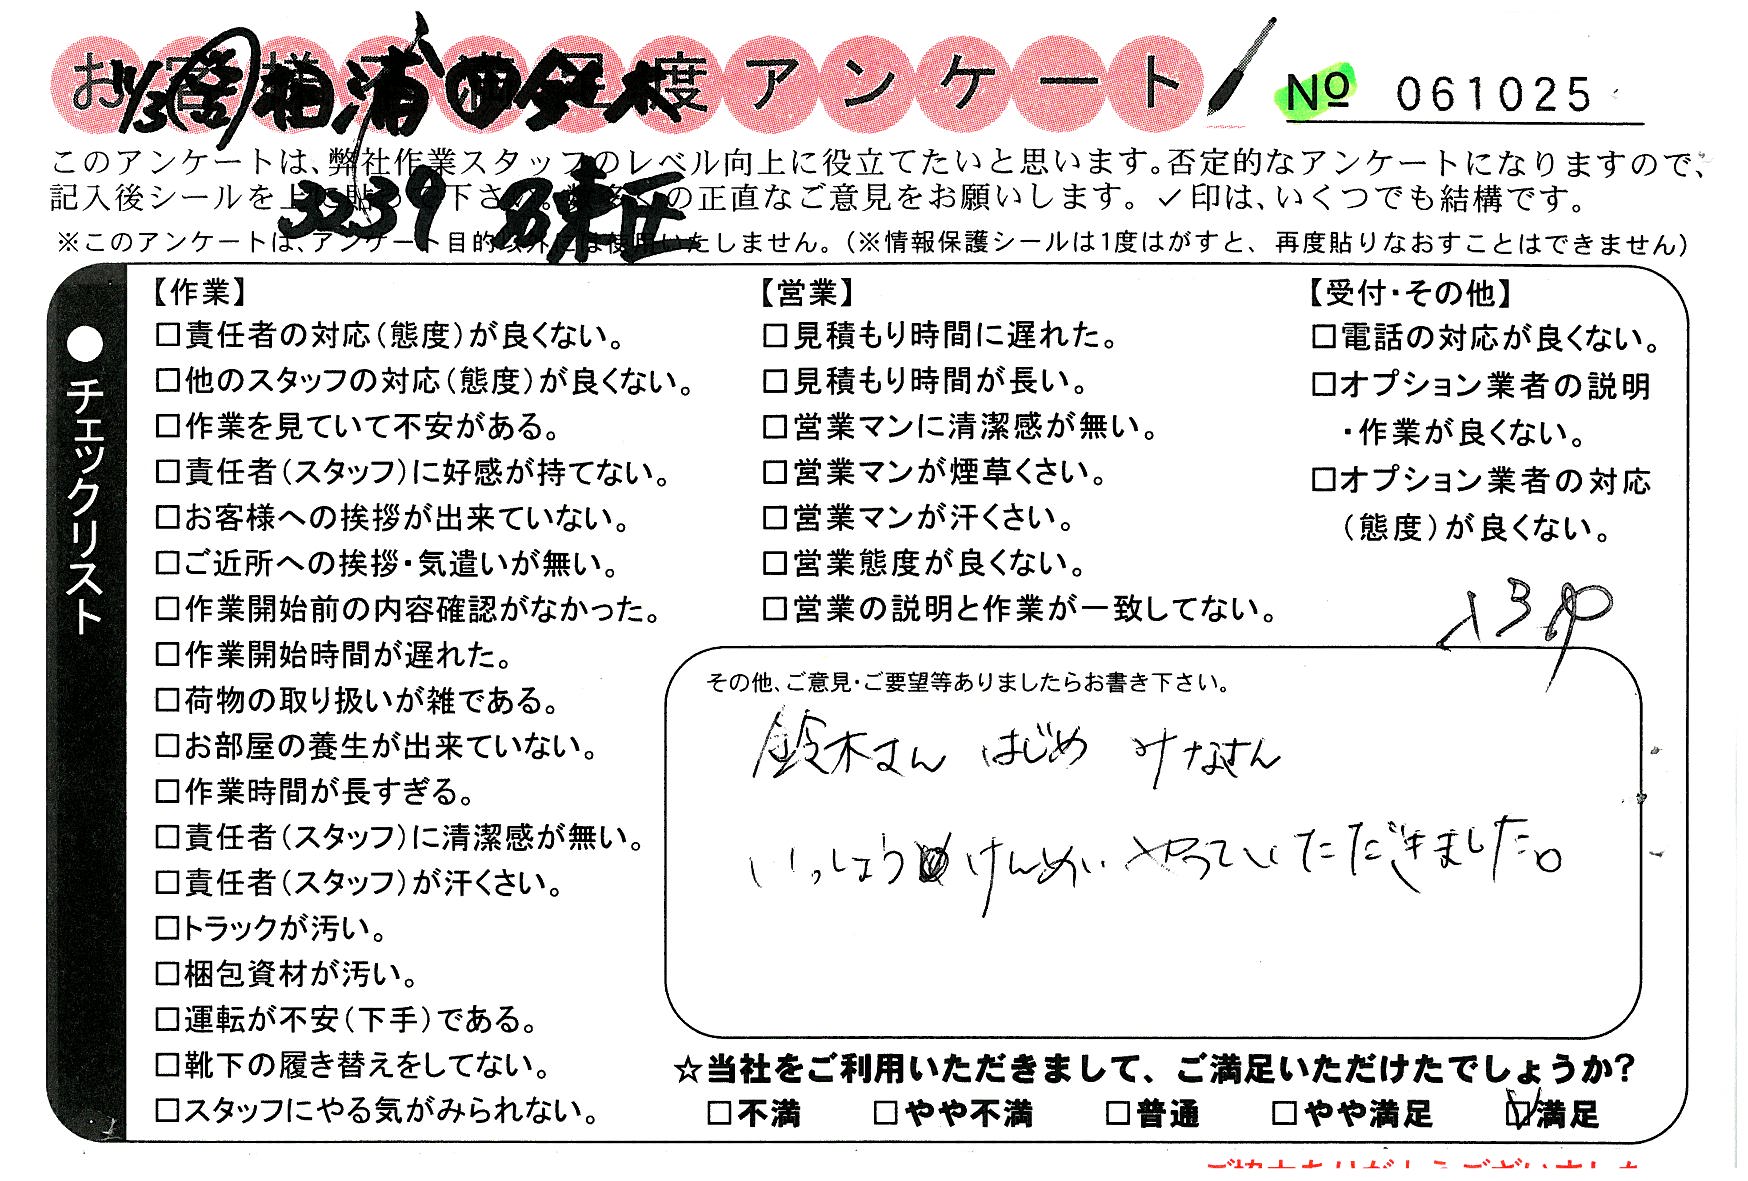 アンケート
No 061025
このアンケートは、弊社作業スタッフのレベル向上に役立てたいと思います。否定的なアンケートになりますので、
記入後シールを上に貼って下さい。数多くの正直なご意見をお願いします。✓印は、いくつでも結構です。
※このアンケートは、アンケート目的以外には使用いたしません。(※情報保護シールは1度はがすと、再度貼りなおすことはできません)
3239
●チェックリスト
【作業】
□責任者の対応(態度)が良くない。
□他のスタッフの対応(態度)が良くない。
□作業を見ていて不安がある。
□責任者(スタッフ)に好感が持てない。
□お客様への挨拶が出来ていない。
□ご近所への挨拶・気遣いが無い。
□作業開始前の内容確認がなかった。
□作業開始時間が遅れた。
□荷物の取り扱いが雑である。
□お部屋の養生が出来ていない。
□作業時間が長すぎる。
□責任者(スタッフ)に清潔感が無い。
□責任者(スタッフ)が汗くさい。
□トラックが汚い。
□梱包資材が汚い。
□運転が不安(下手)である。
□靴下の履き替えをしてない。
□スタッフにやる気がみられない。
【営業】
□見積もり時間に遅れた。
□見積もり時間が長い。
□営業マンに清潔感が無い。
□営業マンが煙草くさい。
□営業マンが汗くさい。
□営業態度が良くない。
□営業の説明と作業が一致してない。
【受付・その他】
□電話の対応が良くない。
□オプション業者の説明
・作業が良くない。
□オプション業者の対応
(態度)が良くない。
その他、ご意見・ご要望等ありましたらお書き下さい。
鈴木さん はじめ みなさん
いっしょうけんめい やっていただきました。
☆当社をご利用いただきまして、ご満足いただけたでしょうか?
□不満 □やや不満 □普通 □やや満足 ☑満足